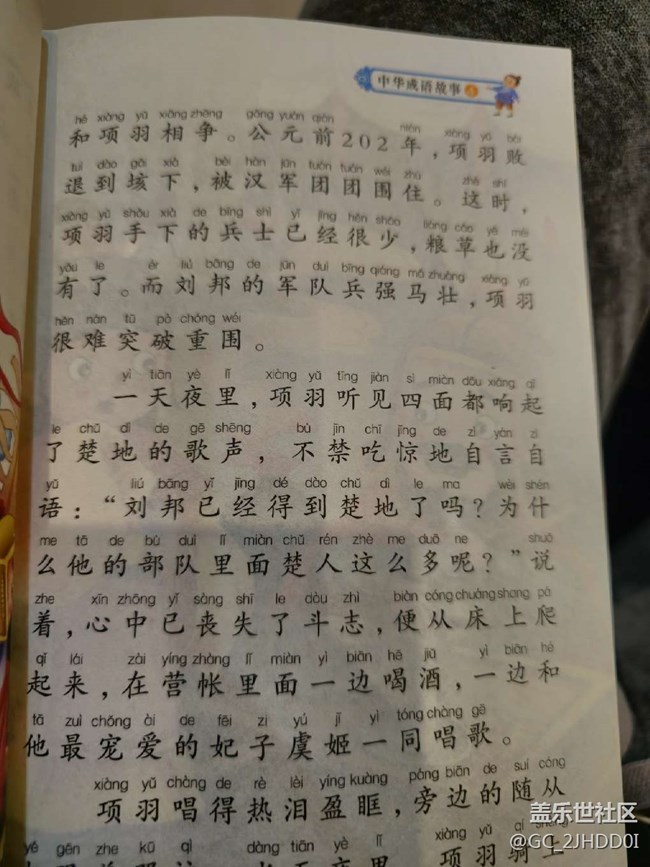 中华成语故事
hé xiàng yǔ xiāng zhēng gōng yuán qián nián xiàng yǔ bài
和项羽相争。公元前202年，项羽败
tuì dào gāi xià bèi hàn jūn tuán tuán wéi zhù zhè shí
退到垓下，被汉军团团围住。这时，
xiàng yǔ shǒu xià de bīng shì yǐ jīng hěn shǎo liáng cǎo yě méi
项羽手下的兵士已经很少，粮草也没
yǒu le ér liú bāng de jūn duì bīng qiáng mǎ zhuàng xiàng yǔ
有了。而刘邦的军队兵强马壮，项羽
hěn nán tū pò chóng wéi
很难突破重围。
yì tiān yè lǐ xiàng yǔ tīng jiàn sì miàn dōu xiǎng qǐ
一天夜里，项羽听见四面都响起
le chǔ dì de gē shēng bù jīn chī jīng de zì yán zì
了楚地的歌声，不禁吃惊地自言自
yǔ liú bāng yǐ jīng dé dào chǔ dì le ma wèi shén
语：“刘邦已经得到楚地了吗？为什
me tā de bù duì lǐ miàn chǔ rén zhè me duō ne shuō
么他的部队里面楚人这么多呢？”说
zhe xīn zhōng yǐ sàng shī le dòu zhì biàn cóng chuáng shang pá
着，心中已丧失了斗志，便从床上爬
qǐ lái zài yíng zhàng lǐ miàn yì biān hē jiǔ yì biān hé
起来，在营帐里面一边喝酒，一边和
tā zuì chǒng ài de fēi zi yú jī yì tóng chàng gē
他最宠爱的妃子虞姬一同唱歌。
xiàng yǔ chàng de rè lèi yíng kuàng páng biān de suí cóng
项羽唱得热泪盈眶，旁边的随从
yě gēn zhe kū qǐ dàng tiān yè lǐ xiàng yǔ qí shàng
项羽骑上
盖乐世社区
@GC_2JHDD0I